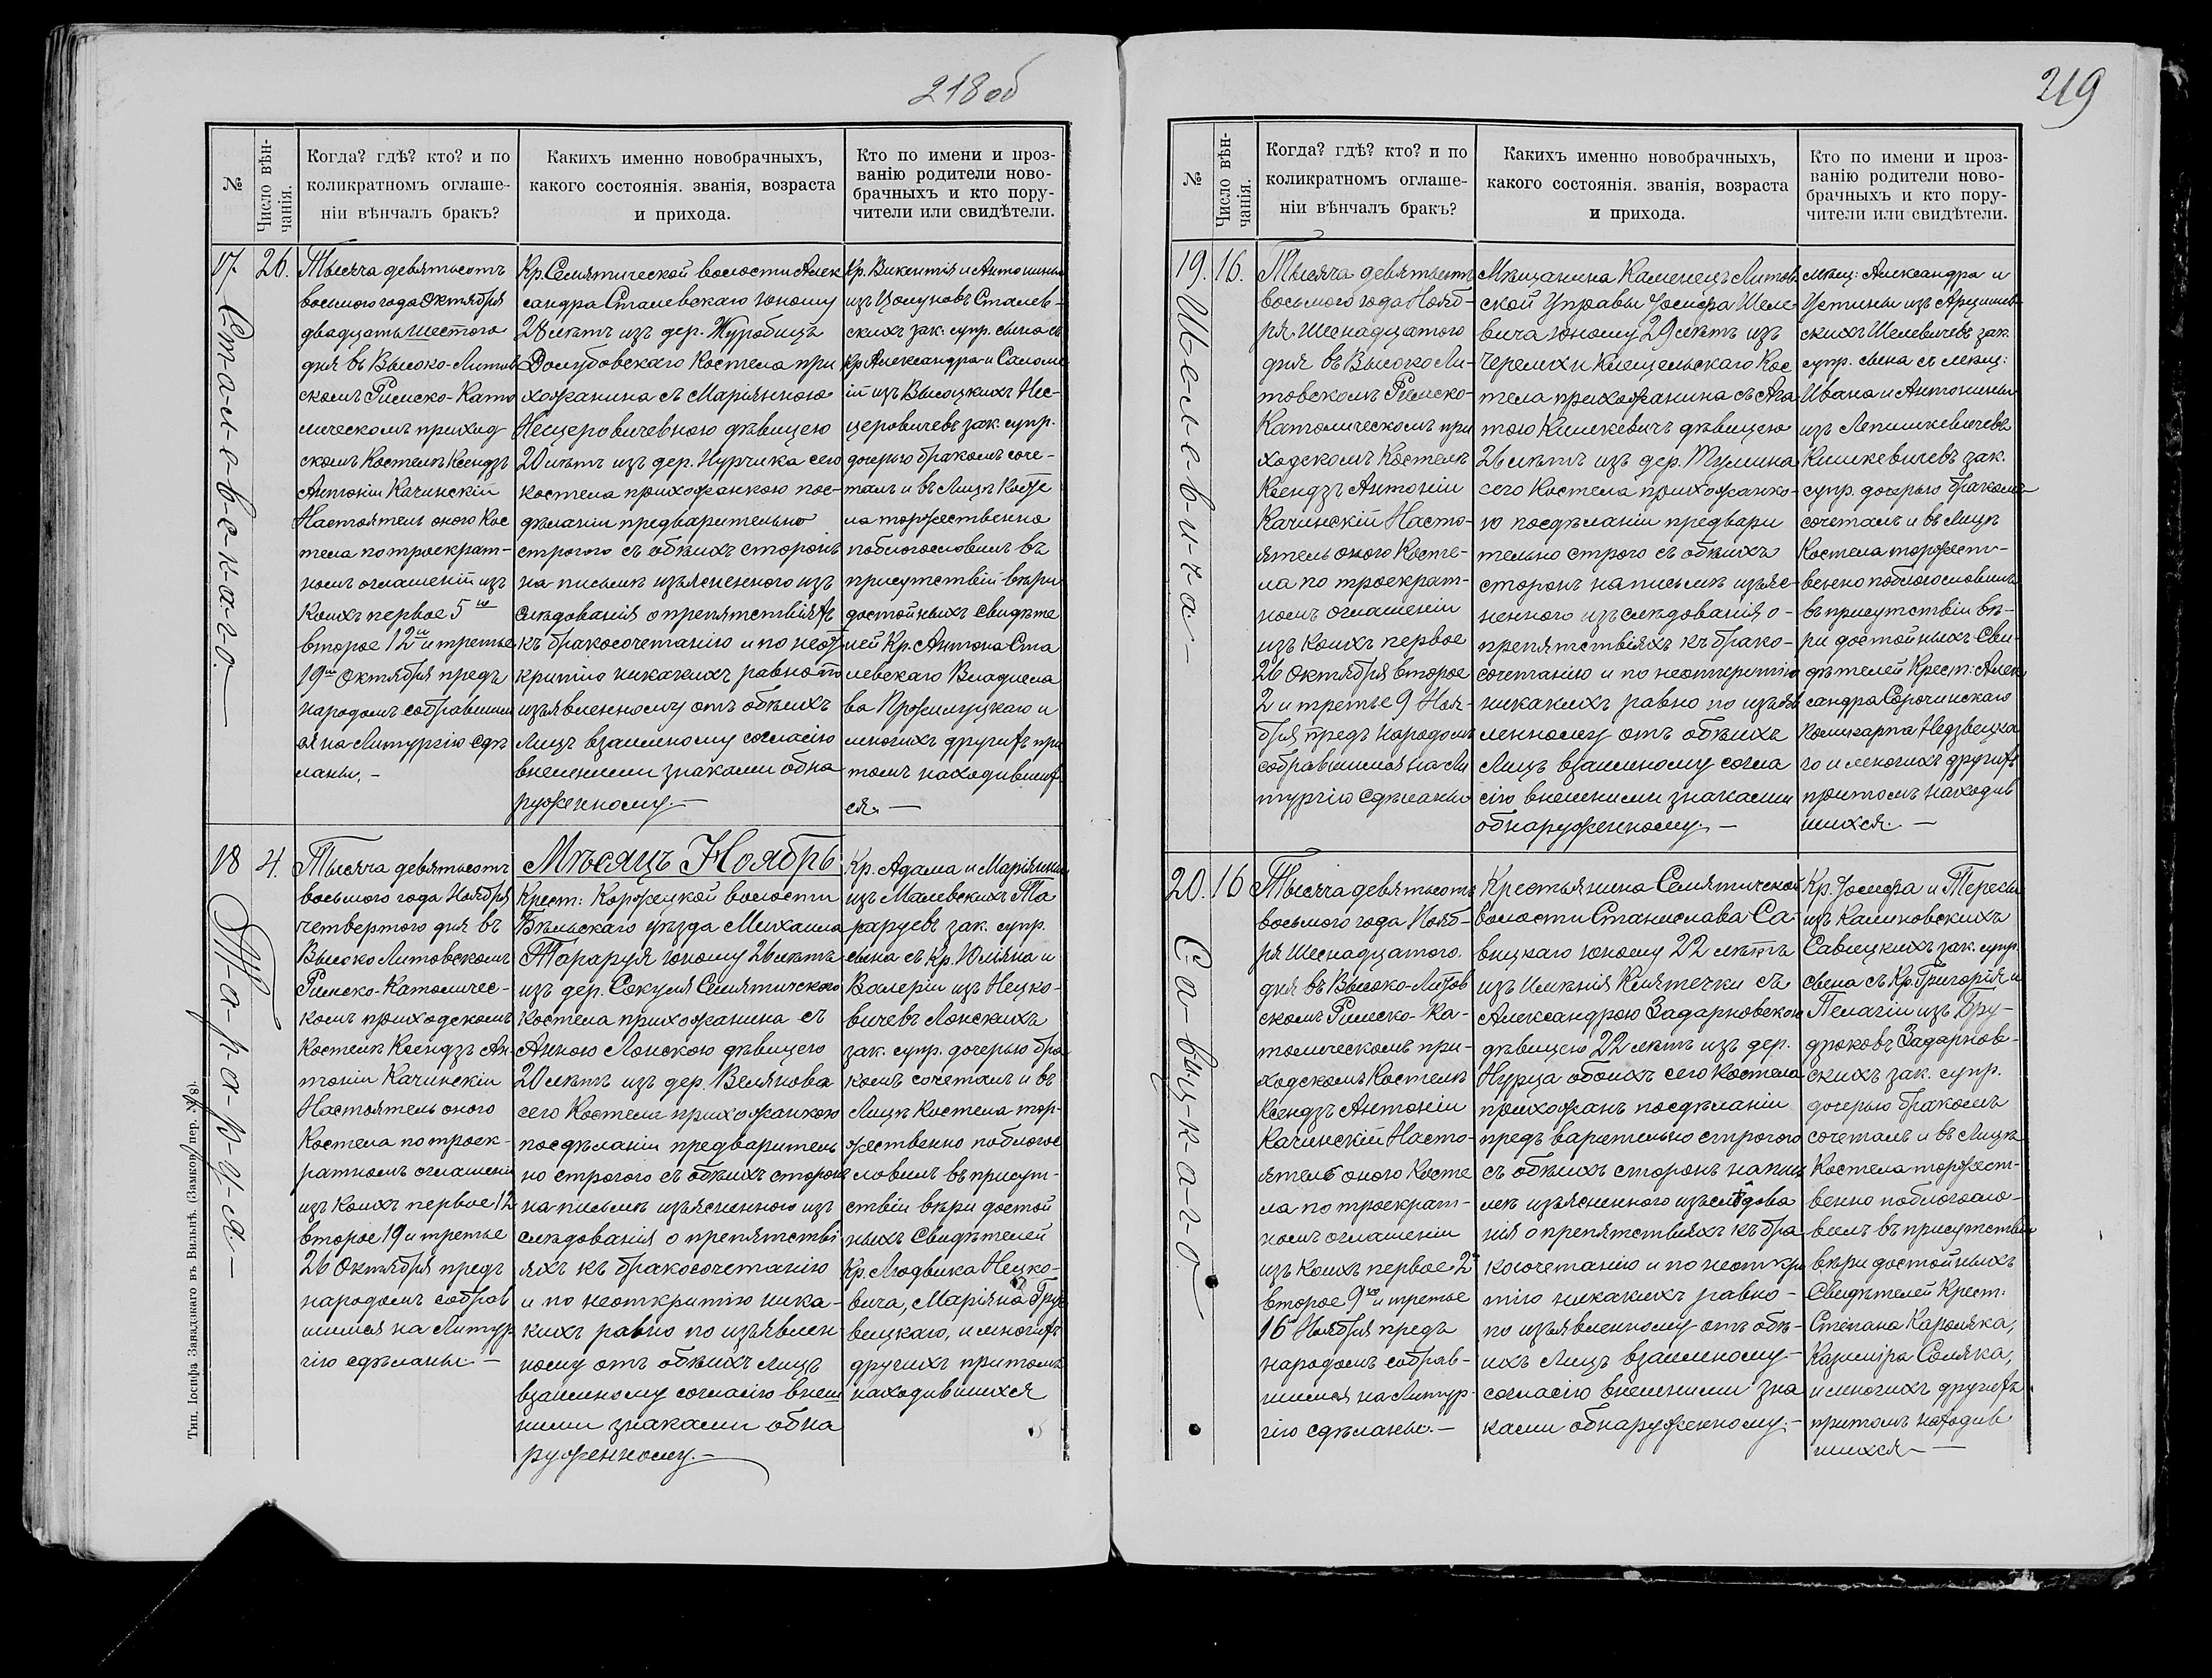 218 об
№
Число вѣн-
чанія.
Когда? гдѣ? кто? и по
коликратномъ оглаше-
ніи вѣнчалъ бракъ?
Какихъ именно новобрачныхъ,
какого состоянія. званія, возраста
и прихода.
Кто по имени и проз-
ванію родители ново-
брачныхъ и кто пору-
чители или свидѣтели.
17
26.
Ста-л-е-в-с-к-а-г-о.—
Тысяча девятьсотъ
восьмого года Октября
двадцать шестого
дня въ Высоко-Литов
скомъ Римско-Като
лическомъ приход
скомъ Костелѣ Ксендзъ
Антоніи Качинскій
Настоятель оного Кос
тела по троекрат-
номъ оглашеніи изъ
коихъ первое 5го
второе 12го и третье
19го Октября предъ
народомъ собравшим
ся на Литургію сдѣ
ланы. -
Кр. Семятической волости Алек
сандра Сталевскаго юношу
28 лѣтъ изъ дер. Журобицъ
Долубовскаго Костела при
хожанина съ Маріянною
Нецеровичевною дѣвицею
20 лѣтъ изъ дер. Нурчика сего
костела прихожанкою пос-
дѣланіи предварительно
строгого съ обѣихъ сторонъ
на письмѣ изъясненного из
слѣдованія о препятствіяхъ
къ бракосочетанію и по неот
критію никакихъ равно по
изъявленному отъ обѣихъ
Лицъ взаимному согласію
внешними знаками обна
руженному.—
Кр. Викентія и Антонины
изъ Цолуновъ Сталев-
скихъ зак. супр. сына съ
Кр. Александра и Саломе
іи изъ Высоцкихъ Не-
церовичевъ зак. супр.
дочерью бракомъ соче-
талъ и въ Лицѣ Косте
ла торжественно
поблогословилъ въ
присутствіи вѣри
достойныхъ Свидѣте
лей Кр. Антона Ста
левскаго Владисла
ва Прожилуцкаго и
многихъ другихъ при
томъ находивших
ся. —
18
4.
Т-а-р-а-р-у-я.—
Тысяча девятьсотъ
восьмого года Ноября
четвертого дня въ
Высоко Литовскомъ
Римско-Католичес-
комъ приходскомъ
Костелѣ Ксендзъ Ан-
тоніи Качинскіи
Настоятель оного
Костела по троек-
ратномъ оглашеніи
изъ коихъ первое 12
второе 19 и третье
26 Октября предъ
народомъ собрав
шимся на Литур
гію сдѣланы. —
Мѣсяцъ Ноябрь
Крест: Коржецкой волости
Бѣльскаго уѣзда Михаила
Тараруя юношу 26 лѣтъ
изъ дер. Сокуля Семятичского
Костела прихожанина съ
Анною Лонскою дѣвицею
20 лѣтъ изъ дер. Велянова
сего Костела прихожанкою
посдѣланіи предваритель
но строгого съ обѣихъ сторонъ
на письмѣ изъясненного из
слѣдованія о препятстві
яхъ къ бракосочетанію
и по неоткритію ника-
кихъ равно по изъявлен
ному отъ обѣихъ лицъ
взаимному согласію внеш
ними знаками обна
руженному.—
Кр. Адама и Маріянны
изъ Малевскихъ Та
раруевъ зак. супр.
сына съ Кр. Юліяна и
Валеріи изъ Нецко-
вичевъ Лонскихъ
зак. супр. дочерью бра
комъ сочеталъ и въ
Лицѣ Костела тор-
жественно поблогос
ловилъ въ присут-
ствіи вѣри достой
ныхъ Свидѣтелей
Кр. Людвика Нецко-
вича, Маріяна Гру
вицкаго, и многихъ
другихъ притомъ
находившихся
Тип. Іосифа Завадзкаго въ Вильнѣ. (Замков. пер. № 8).
219
№
Число вѣн-
чанія.
Когда? гдѣ? кто? и по
коликратномъ оглаше-
ніи вѣнчалъ бракъ?
Какихъ именно новобрачныхъ,
какого состоянія. званія, возраста
и прихода.
Кто по имени и проз-
ванію родители ново-
брачныхъ и кто пору-
чители или свидѣтели.
19.
16.
Ш-е-л-е-в-и-ч-а.—
Тысяча девятьсотъ
восьмого года Нояб-
ря Шеснадцатого
дня въ Высоко Ли-
товскомъ Римско-
Католическомъ при
ходскомъ Костелѣ
Ксендзъ Антоніи
Качинскій Насто-
ятель оного Косте-
ла по троекрат-
номъ оглашеніи
изъ коихъ первое
26 Октября второе
2 и третье 9 Ноя-
бря предъ народомъ
собравшимся на Ли
тургію сдѣланы
Мѣщанина Каменецъ Литов
ской Управы Іосифа Шеле-
вича юношу 29 лѣтъ изъ
Черемхи Клещельскаго Кос
тела прихожанина съ Ага
тою Кишкевичъ дѣвицею
26 лѣтъ изъ дер. Тумина
сего Костела прихожанко-
ю посдѣланіи предвари
тельно строго съ обѣихъ
сторонъ на письмѣ изъяс-
ненного изъслѣдованія о-
препятствіяхъ къ брако-
сочетанію и по неоткритію
никакихъ равно по изъяв
ленному отъ обѣихъ
Лицъ взаимному согла
сію внешними знаками
обнаруженному —
Мѣщ: Александра и
Устины изъ Арцишев
скихъ Шелевичевъ зак.
супр. сына съ мѣщ:
Ивана и Антонины
изъ Лепишкевичевъ
Кишкевичевъ зак.
супр. дочерью бракомъ
сочеталъ и въ Лицѣ
Костела торжест-
венно поблогословилъ
въ присутствіи вѣ-
ри достойныхъ Сви-
дѣтелей Крест: Алек
сандра Сорочинскаго
Поликарпа Недзвецка
го и многихъ другихъ
притомъ находив
шихся. —
20.
16
С-а-в-и-ц-к-а-г-о.
Тысяча девятьсотъ
восьмого года Нояб-
ря Шеснадцатого.
дня въ Высоко-Литов
скомъ Римско-Ка-
толическомъ при-
ходскомъ Костелѣ
Ксендзъ Антоніи
Качинскій Насто-
ятель оного Косте
ла по троекрат-
номъ оглашеніи
изъ коихъ первое 2го
второе 9го и третье
16го Ноября предъ
народомъ собрав-
шимся на Литур-
гію сдѣланы.—
Крестьянина Семятичской
волости Станислава Са-
вицкаго юношу 22 лѣтъ
изъ Имѣнія Клятечки съ
Александрою Задарновскою
дѣвицею 22 лѣтъ изъ дер.
Нурца обоихъ сего Костела
прихожанъ посдѣланіи
предъ варительно строгого
съ обѣихъ сторонъ на пись
мѣ изъясненного изъслѣдова
нія о препятствіяхъ къ бра
косочетанію и по неоткри
тію никакихъ равно-
по изъявленному отъ обѣ-
ихъ Лицъ взаимному-
согласію внешними зна
ками обнаруженному.-
Кр. Іосифа и Тересы
изъ Калиновскихъ
Савицкихъ зак. супр.
сына съ Кр. Григорія и
Пелагіи изъ Бру-
дзюковъ Задарнов-
скихъ зак. супр.
дочерью бракомъ
сочеталъ и въ Лицѣ
Костела торжест-
венно поблогосло-
вилъ въ присутствіи
вѣри достойныхъ
Свидѣтелей Крест:
Степана Кароляка,
Казиміра Соляка,
и многихъ другихъ
притомъ находив
шихся —